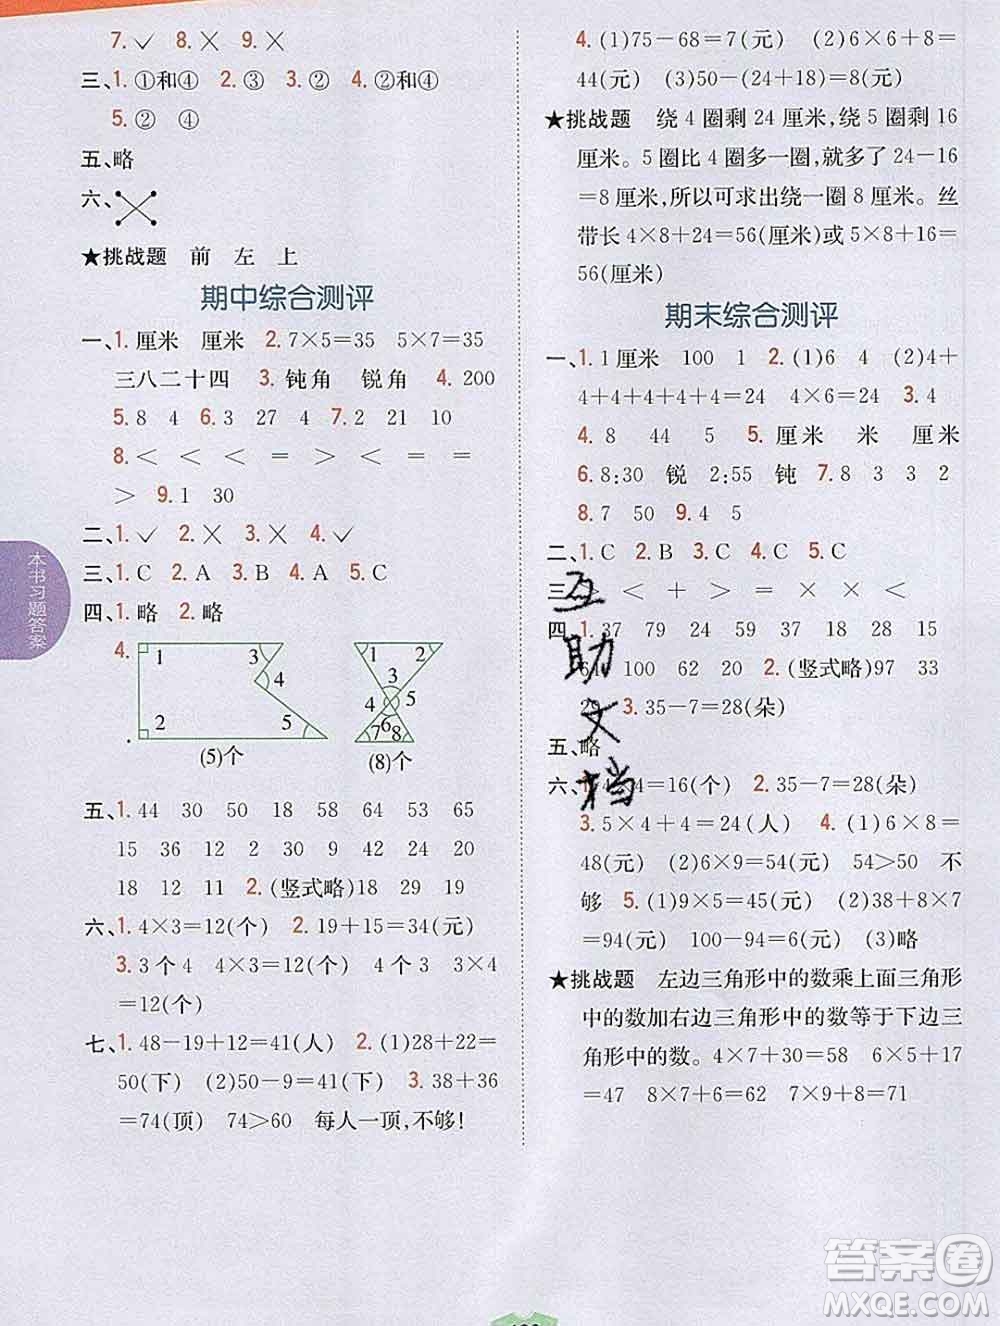 7. ✓ 8. ✕ 9. ✕
三、1. ①和④ 2. ③ 3. ① 4. ②和④
5. ② ④
五、略
六、
★挑战题 前 左 上
期中综合测评
一、1. 厘米 厘米 2. 7×5=35 5×7=35
三八二十四 3. 钝角 锐角 4. 200
5. 8 4 6. 3 27 4 7. 2 21 10
8. < < < = > < = =
> 9. 1 30
二、1. ✓ 2. ✕ 3. ✕ 4. ✓
三、1. C 2. A 3. B 4. A 5. C
四、1. 略 2. 略
4. 1 2 3 4 5
(5)个
1 2 3 4 5 6 7 8
(8)个
五、1. 44 30 50 18 58 64 53 65
15 36 12 30 50 24 54 24
18 12 45 2. (竖式略)18 29 19
六、1. 4×3=12(个) 2. 19+15=34(元)
3. 3个4 4×3=12(个) 4个3 3×4
=12(个)
七、1. 48-19+12=41(人) 2. (1)28+22=
50(下) (2)50-9=41(下) 3. 38+36
=74(顶) 74>70 每人一顶,不够!
4. (1)75-68=7(元) (2)6×6+8=
44(元) (3)50-(24+18)=8(元)
★挑战题 绕4圈剩24厘米,绕5圈剩16
厘米。5圈比4圈多一圈,就多了24-16
=8厘米,所以可求出绕一圈8厘米。丝
带长4×8+24=56(厘米)或5×8+16=
56(厘米)
期末综合测评
一、1. 1厘米 100 1 2. (1)6 4 (2)4+
4+4+4+4+4=24 4×6=24 3. 4
4. 8 44 5 5. 厘米 米 厘米
6. 8:30 锐 2:55 钝 7. 8 3 3 2
8. 7 50 9. 4 5
二、1. C 2. B 3. C 4. C 5. C
三、> < + > = × × <
四、1. 37 79 24 37 18 28 15
61 100 62 20 2. (竖式略)97 33
29 3. 35-7=28(朵)
五、略
六、1. 4×4=16(个) 2. 35-7=28(朵)
3. 5×4+4=24(人) 4. (1)6×8=
48(元) (2)6×9=54(元) 54>50 不
够 5. (1)9×5=45(元) (2)38+8×7
=94(元) 100-94=6(元) (3)略
★挑战题 左边三角形中的数乘上面三角形
中的数加右边三角形中的数等于下边三
角形中的数。4×7+30=58 6×5+17
=47 8×7+6=62 7×9+8=71
本书习题答案
互助文档
答案圈
MXQE.COM